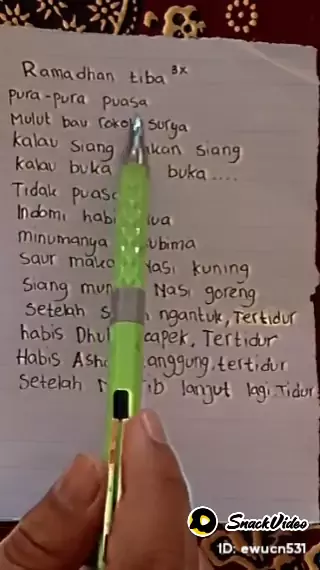 Ramadhan tiba 3x
pura-pura puasa
Mulut bau rokok surya
kalau siang makan siang
kalau buka buka ....
Tidak puasa
Indomi habi ua
minumanya ubima
saur makan Nasi kuning
siang mun Nasi goreng
setelah s n ngantuk, Tertidur
habis Dhu capek, Tertidur
Habis Asha anggung, tertidur
setelah ib lanjut lagi Tidur
SnackVideo
ID: ewucn531